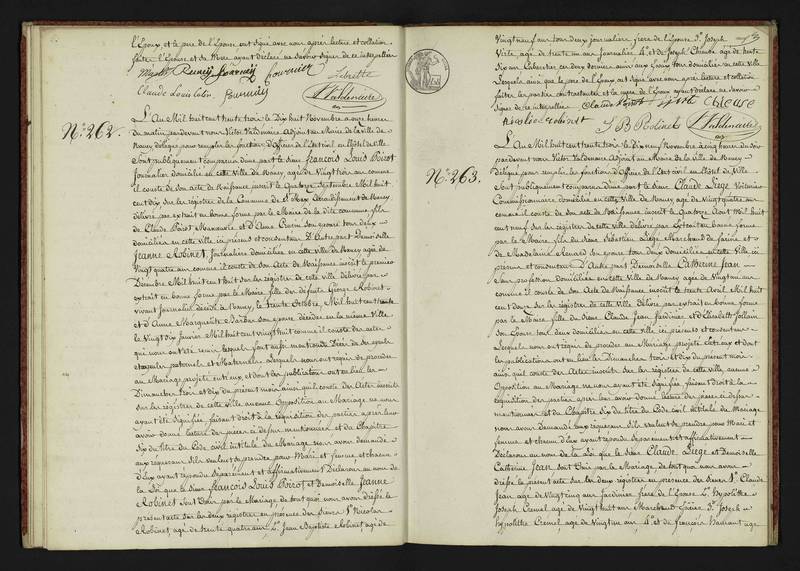 l'Epoux, et le père de l'Epouse ont signé avec nous après lecture et collation
faites l'Epouse et sa Mère ayant déclaré ne savoir signer de ce interpellées
Claude Louis Colin
Valdenaire
N.° 262.
L'An Mil huit cent trente trois le Dix huit Novembre à onze heures
du matin pardevant nous Victor Valdenaire Adjoint au Maire de la ville de
Nancy délégué pour remplir les fonctions d'Officier de l'Etat civil en l'Hôtel de Ville
sont publiquement comparus d'une part le sieur François Louis Poirot
Journalier domicilié en cette Ville de Nancy, âgé de Vingt trois ans comme
il conste de son acte de Naissance inscrit le Quatorze Septembre Mil huit
cent dix sur les registres de la Commune de St Max Arrondissement de Nancy
délivré par extrait en bonne forme par le Maire de la dite commune fils
de Claude Poirot Manœuvre et d'Anne son épouse tous deux
domiciliés en cette ville ici présents et consentans D'autre part Demoiselle
Jeanne Robinet, Journalière domiciliée en cette Ville de Nancy âgée de
Vingt quatre ans comme il conste de son Acte de Naissance inscrit le premier
Décembre Mil huit cent huit sur les registres de cette ville délivré par
extrait en bonne forme par le Maire, fille des défunts George Robinet
vivant Journalier décédé à Nancy, le trente Octobre, Mil huit cent
et d'Anne Marguerite Barbier son épouse décédée en la même Ville
le Vingt dix Janvier Mil huit cent vingt huit comme il conste des actes
qui nous ont été remis lesquels font aussi mention du Décès de ses ayeuls
et ayeules paternels et Maternels Lesquels nous ont requis de procéder
au Mariage projeté entre eux et dont les publications ont eu lieu les
Dimanches trois et dix du présent mois ainsi qu'il conste des Actes inscrits
sur les registres de cette Ville aucune Opposition au Mariage ne nous
ayant été signifiée, faisant droit à la réquisition des parties après leur
avoir donné lecture des pièces ci dessus mentionnées et du Chapitre
Six du titre du Code civil intitulé du Mariage nous avons demandé
aux requérans s'ils veulent se prendre pour Mari et femme, et chacun
d'eux ayant répondu séparément et affirmativement Déclarons au nom de
la Loi que le sieur François Louis Poirot et Demoiselle Jeanne
Robinet sont Unis par le Mariage de tout quoi nous avons dressé le
présent acte sur les deux registres en présence des sieurs 1.° Nicolas
Robinet, âgé de trente quatre ans 2.° Jean Baptiste Robinet âgé de
Vingt neuf ans tous deux journaliers frères de l'Epouse 3.° Joseph
âgé de trente un ans Journalier 4.° et de Joseph Chleuse âgé de trente
Six ans Cabaretier ces deux derniers amis aux Epoux tous domiciliés en cette Ville
Lesquels ainsi que le père de l'Epoux ont signé avec nous après lecture et collation
faites les parties contractantes et la mère de l'Epoux ayant déclaré ne savoir
signer de ce interpellées
Claude Poirot
Chleuse
Nicolas Robinet
J B Robinet
Valdenaire
N.° 263.
L'An Mil huit cent trente trois le Dix neuf Novembre à cinq heures du soir
pardevant nous Victor Valdenaire Adjoint au Maire de la ville de Nancy
délégué pour remplir les fonctions d'Officier de l'Etat civil en l'Hôtel de Ville
sont publiquement comparus d'une part le sieur Claude Liège Voiturier
Commissionnaire domicilié en cette Ville de Nancy âgé de vingt quatre ans
comme il conste de son acte de Naissance inscrit le Quatorze Août Mil huit
cent neuf sur les registres de cette Ville délivré par Extrait en bonne forme
par le Maire, fils du sieur Sébastien Liège Marchand de farine et
de Madelaine Renard son épouse tous deux domiciliés en cette ville ici
présens et consentans D'Autre part Demoiselle Catherine Jean
Sans profession domiciliée en cette Ville de Nancy âgée de Vingt un ans
comme il conste de son Acte de Naissance inscrit le trente Avril Mil huit
cent douze sur les registres de cette Ville délivré par extrait en bonne forme
par le Maire fille du sieur Claude Jean Jardinier et d'Elisabeth
son Epouse tous deux domiciliés en cette ville ici présents et consentans
Lesquels nous ont requis de procéder au Mariage projeté Entre eux et dont
les publications ont eu lieu les Dimanches trois et dix du présent mois
ainsi qu'il conste des Actes inscrits sur les registres de cette ville, aucune
Opposition au Mariage ne nous ayant été signifiée faisant droit à la
réquisition des parties après leur avoir donné lecture des pièces ci dessus
mentionnées et du Chapitre Six du titre du Code civil intitulé du Mariage
nous avons demandé aux requérans s'ils veulent se prendre pour Mari et
femme et chacun d'eux ayant répondu séparément et affirmativement
Déclarons au nom de la Loi que le sieur Claude Liège et Demoiselle
Catherine Jean sont Unis par le Mariage de tout quoi nous avons
dressé le présent acte sur les deux registres en présence des sieurs 1.° Claude
Jean âgé de Vingt cinq ans Jardinier frère de l'Epouse 2.° Hypolithe
Joseph Cremel âgé de Vingt huit ans Marchand 3.° Joseph
hypolithe Cremel, âgé de Vingt un ans 4.° et de François âge